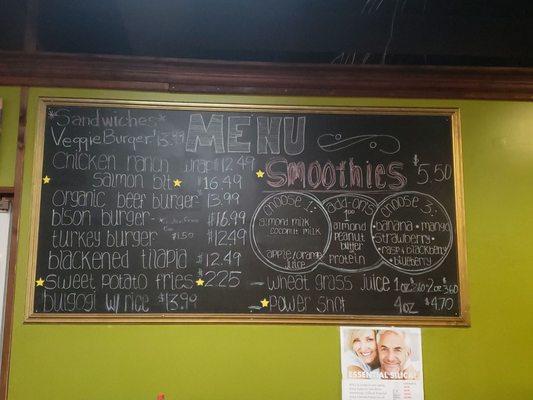 *Sandwiches*
Veggie Burger. 13.99
chicken ranch wrap $12.49
salmon blt $16.49
organic beef burger 13.99
bison burger $16.99
turkey burger $1.50 $12.49
blackened tilapia $12.49
sweet potato fries $2.25
bulgogi w/ rice $13.99
MENU
Smoothies $5.50
choose 1:
almond milk
coconut milk
apple/orange
juice
add-ons
1.00
almond
peanut
butter
protein
choose 3:
banana • mango
strawberry
rasp & blackberry
blueberry
wheat grass juice 1oz 2oz 3.60
power shot 4oz $4.70
ESSENTIAL SILICA